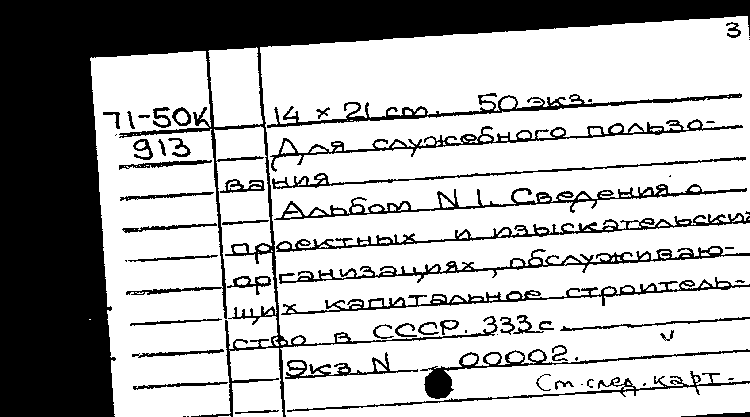 3
71-50К 14 × 21 cm. 50 экз.
913 Для служебного пользо-
вания
Альбом N 1. Сведения о
проектных и изыскательских
организациях, обслуживаю-
щих капитальное строитель-
ство в СССР. 333 с.
Экз. N 00002. v
См. след. карт.